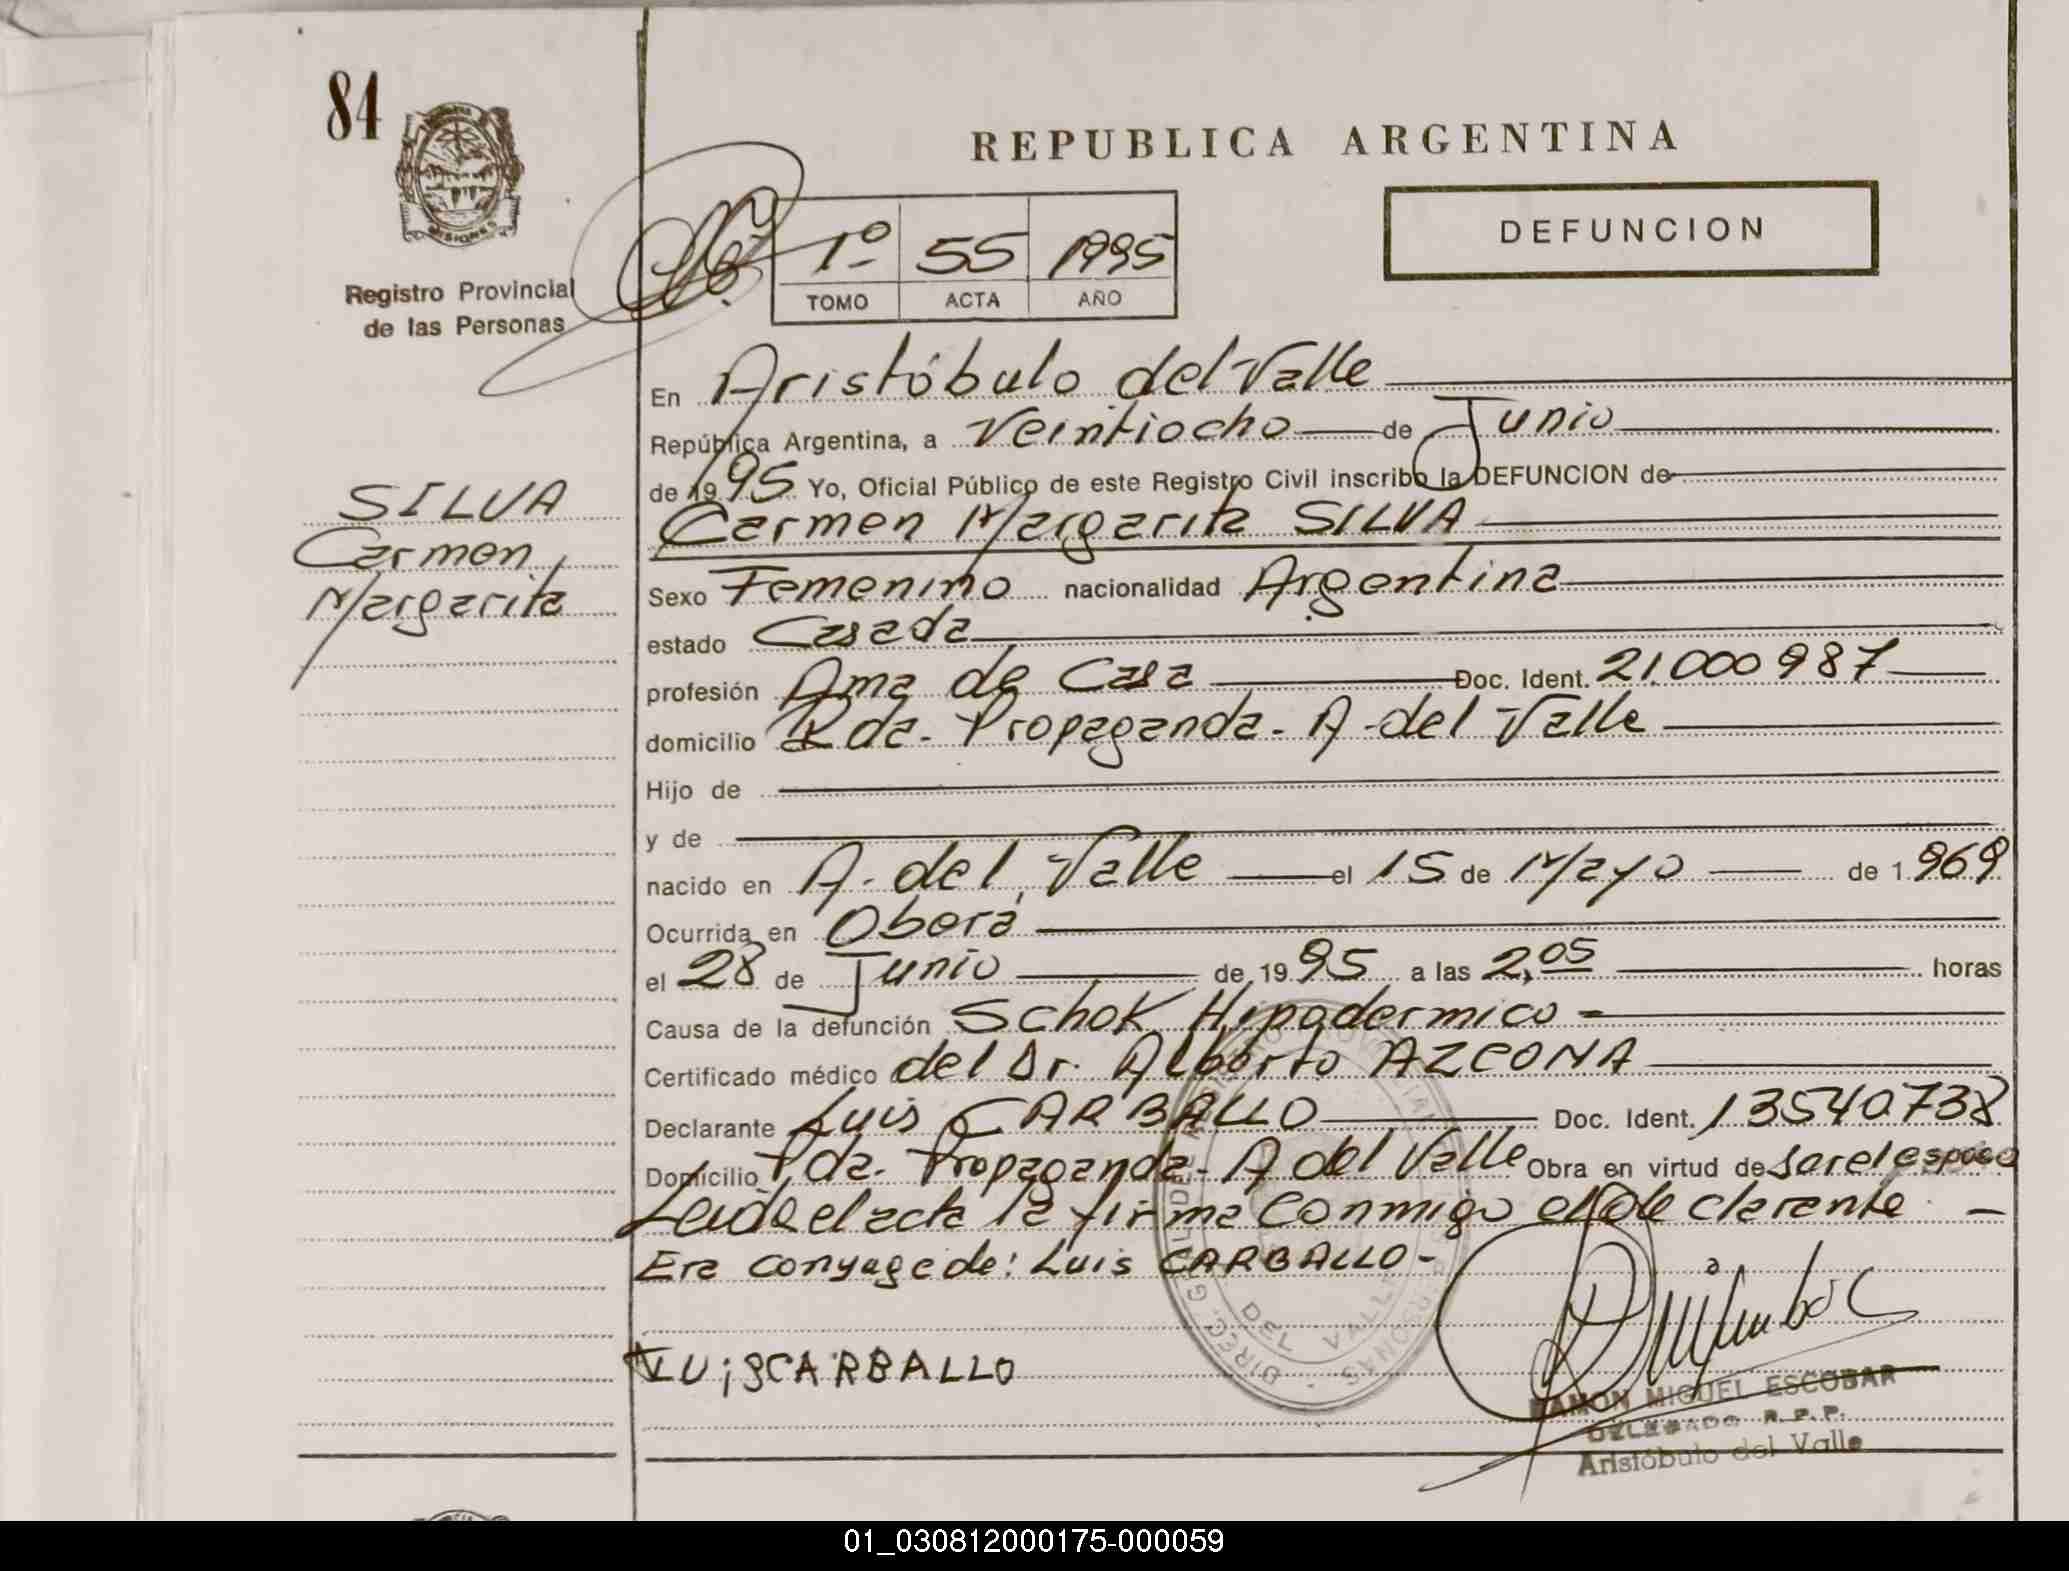 84
MISIONES
Registro Provincial
de las Personas
REPUBLICA ARGENTINA
1º 55 1995
TOMO ACTA AÑO
DEFUNCION
SILVA
Carmen
Margarita
En Aristóbulo del Valle
República Argentina, a Veintiocho de Junio
de 1995 Yo, Oficial Público de este Registro Civil inscribo la DEFUNCION de
Carmen Margarita SILVA
Sexo Femenino nacionalidad Argentina
estado Casada
profesión Ama de Casa Doc. Ident. 21.000987
domicilio Pda. Propaganda - A. del Valle
Hijo de
y de
nacido en A. del Valle el 15 de Mayo de 1969
Ocurrida en Oberá
el 28 de Junio de 1995 a las 2,05 horas
Causa de la defunción Schok Hipodermico
Certificado médico del Dr. Alberto AZCONA
Declarante Luis CARBALLO Doc. Ident. 13540.738
Domicilio Pda. Propaganda - A del Valle Obra en virtud de ser el esposo
Leida el acta la firma conmigo el declarante -
Era conyuge de: Luis CARBALLO -
LUiSCARBALLO
DEL VALLE
RAMON MIGUEL ESCOBAR
DELEGADO R.P.P.
Aristóbulo del Valle
01_030812000175-000059